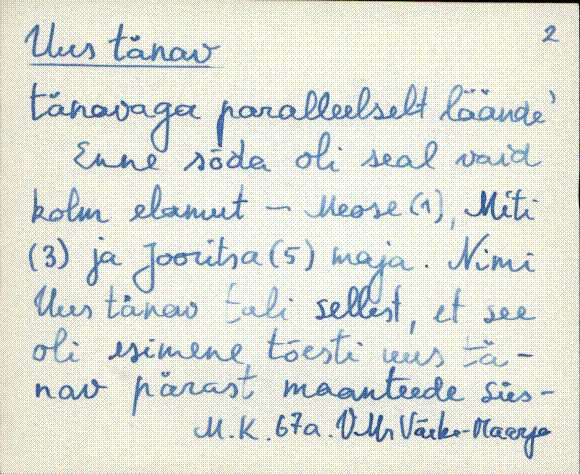 Uus tänav
2
tänavaga paralleelselt läände'
Enne sõda oli seal vaid
kolm elamut – Meose (1), Miti
(3) ja Jooritsa (5) maja. Nimi
Uus tänav tuli sellest, et see
oli esimene, tõesti uus tä-
nav pärast maanteede süs-
M.K. 67a. V.Mr Väike-Maarja